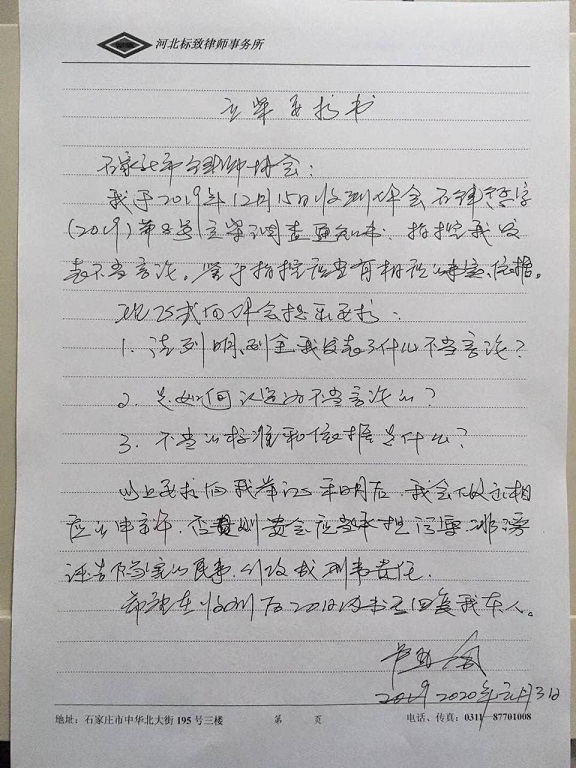 河北标致律师事务所
立案要求书
石家庄市律师协会：
我于2019年12月15日收到你会石律
(2019)第8号立案调查通知书，指控我发
表不当言论。鉴于指控应当有相应的事实、依据。
现正式向你会提出要求：
1、请列明、列全我发表了什么不当言论？
2、是如何认定为不当言论的？
3、不当的标准和依据是什么？
以上要求向我举证、申明后，我会做出相
应的申辩，否则贵会应当承担污蔑、诽谤
诬告陷害的民事、行政或刑事责任。
希望在收到后20日内书面回复我本人。
2019 2020年元月3日
地址：石家庄市中华北大街 195 号三楼 第 页 电话、传真：0311—87701008